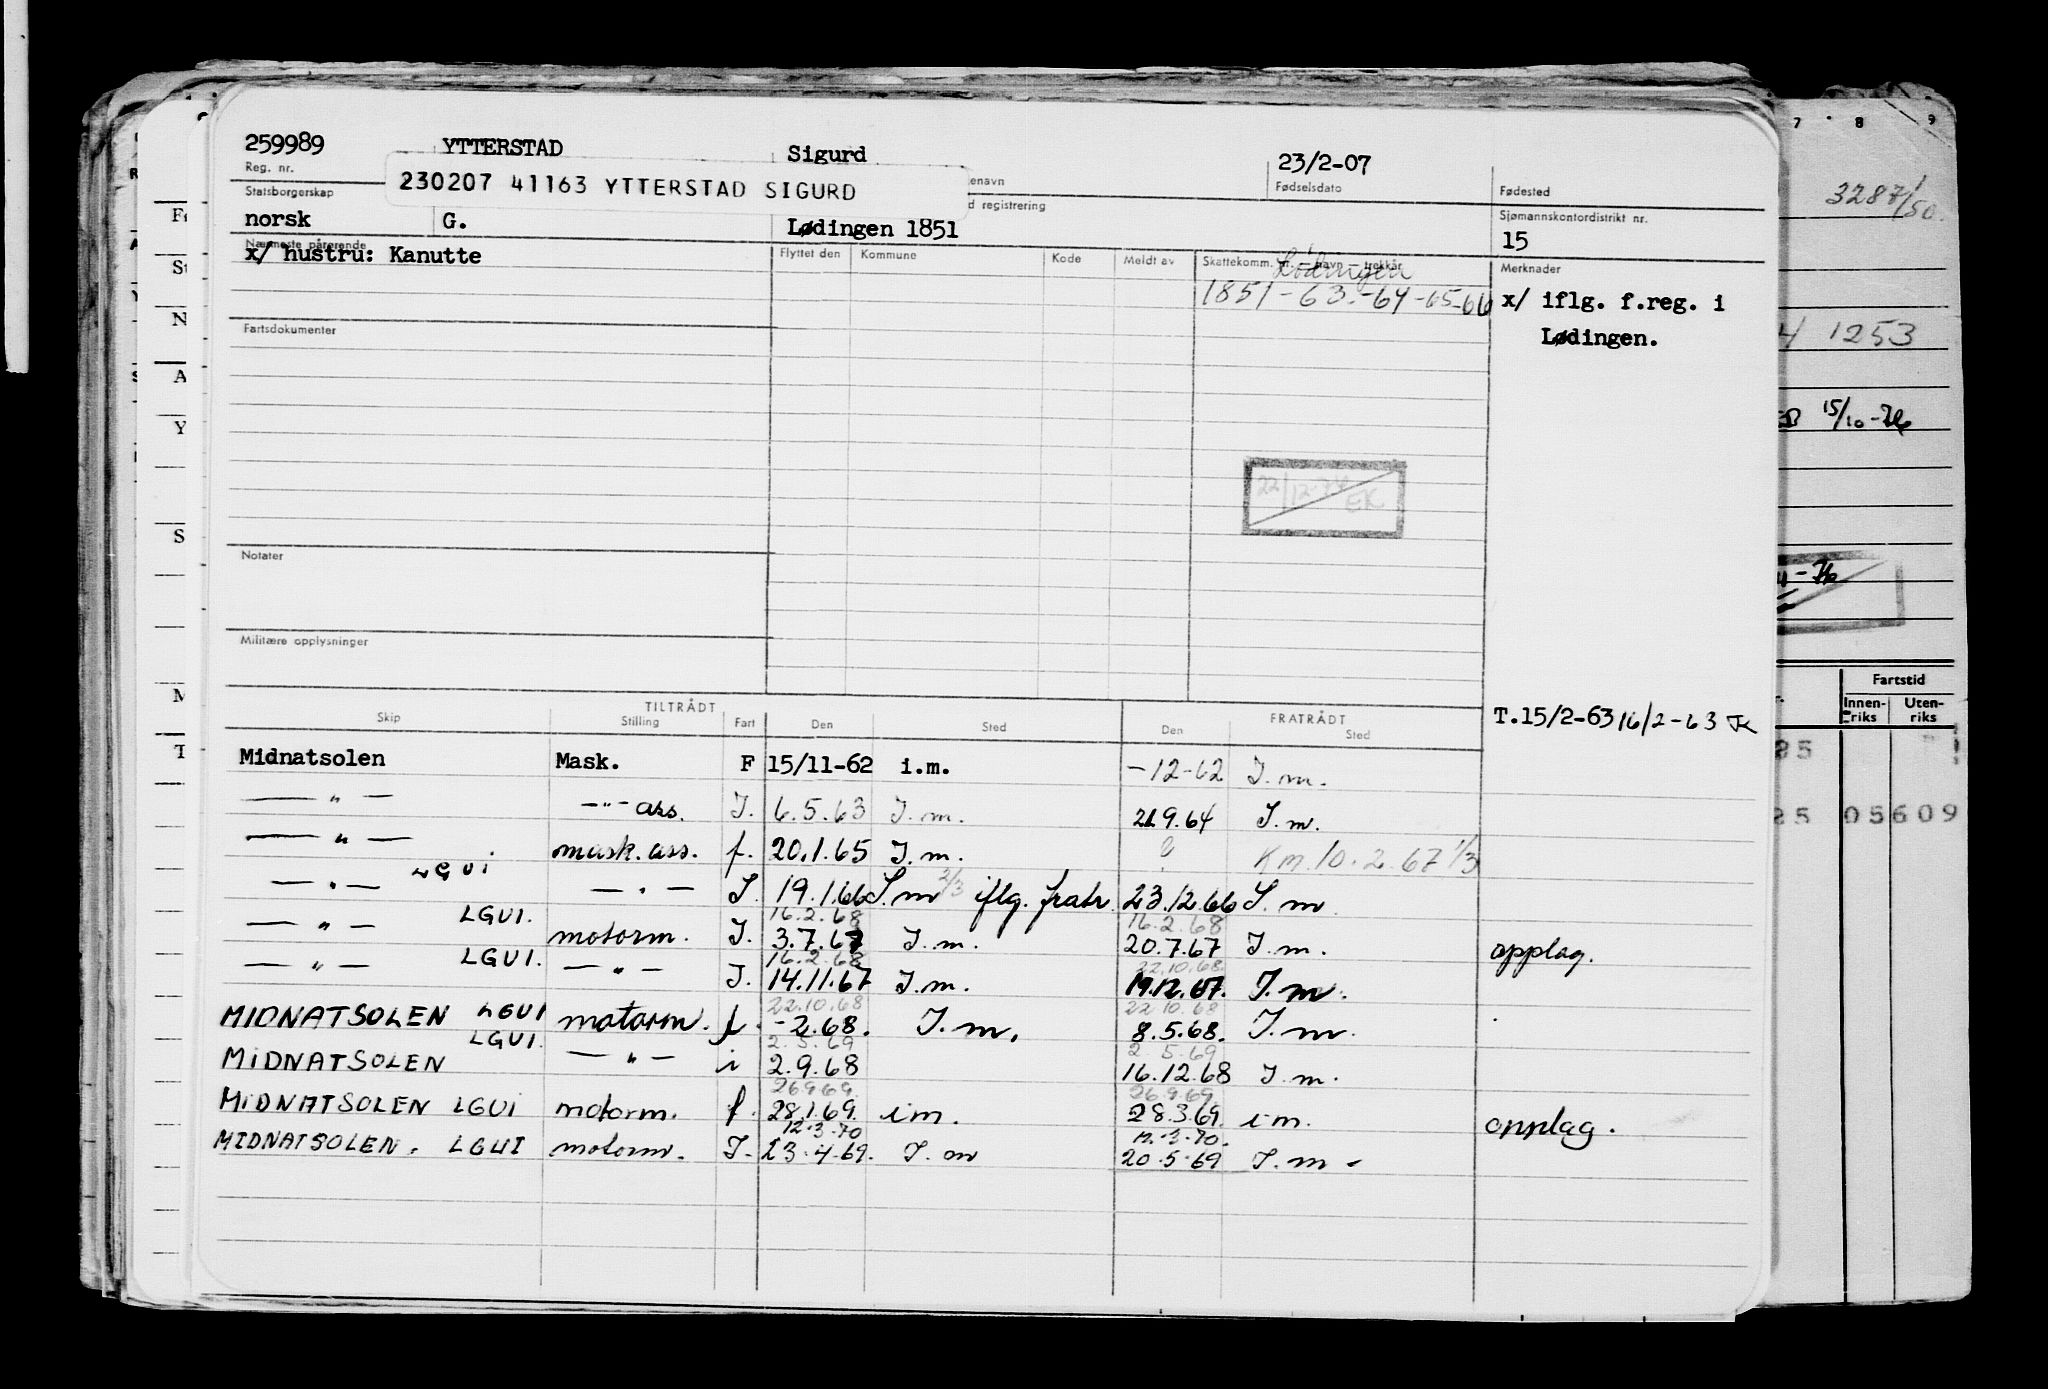 259989 YTTERSTAD Sigurd 23/2-07
Reg. nr. Fødselsdato Fødested
230207 41163 YTTERSTAD SIGURD
Statsborgerskap Sjømannskontordistrikt nr.
norsk G. Lødingen 1851 15
Nærmeste pårørende Flyttet den Kommune Kode Meldt av Skattekomm. Merknader
x/ hustru: Kanutte
Lødingen
1851-63-64-65-66 x/ iflg. f.reg. i
Lødingen.
Fartsdokumenter
22/12-74 EK
Notater
Militære opplysninger
TILTRÅDT FRATRÅDT
Skip Stilling Fart Den Sted Den Sted
T.15/2-63 16/2-63
Midnatsolen Mask. F 15/11-62 i.m. -12-62 I.m.
— " — — " — ass. I. 6.5.63 I.m. 21.9.64 I.m.
— " — mask.ass. f. 20.1.65 I.m. Km.10.2.67 1/3
— " — LGUI — " — I. 19.1.66 I.m 2/3 iflg. fratr. 23.12.66 I.m
16.2.68 16.2.68
— " — LGUI. motorm. I. 3.7.67 I.m. 20.7.67 I.m. opplag.
16.2.68 22.10.68.
— " — LGUI. — " — I. 14.11.67 I.m. 19.12.67. I.m.
22.10.68 22.10.68
MIDNATSOLEN LGUI motorm. f. -2.68. I.m. 8.5.68. I.m.
2.5.69 2.5.69
MIDNATSOLEN LGUI. — " — i 2.9.68 16.12.68 I.m.
26.9.69. 26.9.69.
MIDNATSOLEN LGUI motorm. f. 28.1.69. i m. 28.3.69. i m. opplag.
12.3.70 12.3.70.
MIDNATSOLEN. LGUI motorm. I. 23.4.69. I.m 20.5.69 I.m-
7 8 9
3287/50.
1253
15/10-76
Fartstid
Innenriks Utenriks
25
25 05609